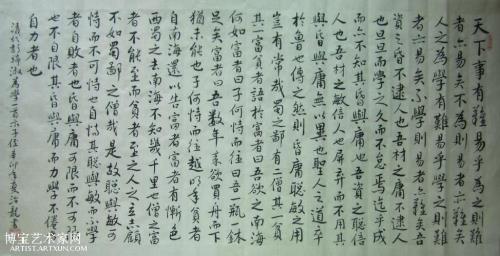 天下事有難易乎為之則難
者亦易矣不為則易者亦難矣
人之為學有難易乎學之則難
者亦易矣不學則易者亦難矣吾
資之昏不逮人也吾材之庸不逮人
也旦旦而學之久而不怠焉迄乎成
而亦不知其昏與庸也吾資之聰倍
人也吾材之敏倍人也屏弃而不用其
與昏與庸無以異也聖人之道卒
於魯也傳之然則昏庸聰敏之用
豈有常哉蜀之鄙有二僧其一貧
其一富貧者語於富者曰吾欲之南海
何如富者曰子何恃而往曰吾一瓶鉢
足矣富者曰吾數年來欲買舟而下
猶未能也子何恃而往越明年貧者
自南海還以告富者富者有慚色
西蜀之去南海不知幾千里也僧之富
者不能至而貧者至之人之立志顧
不如蜀鄙之僧哉是故聰與敏可
恃而不可恃也自恃其聰與敏而不學
者自敗者也昏與庸可限而不可限
也不自限其昏與庸而力學不倦
自力者也
清代彭端淑為學一首示子侄辛卯年夏治龍書
博宝艺术家网
Artist.artxun.com